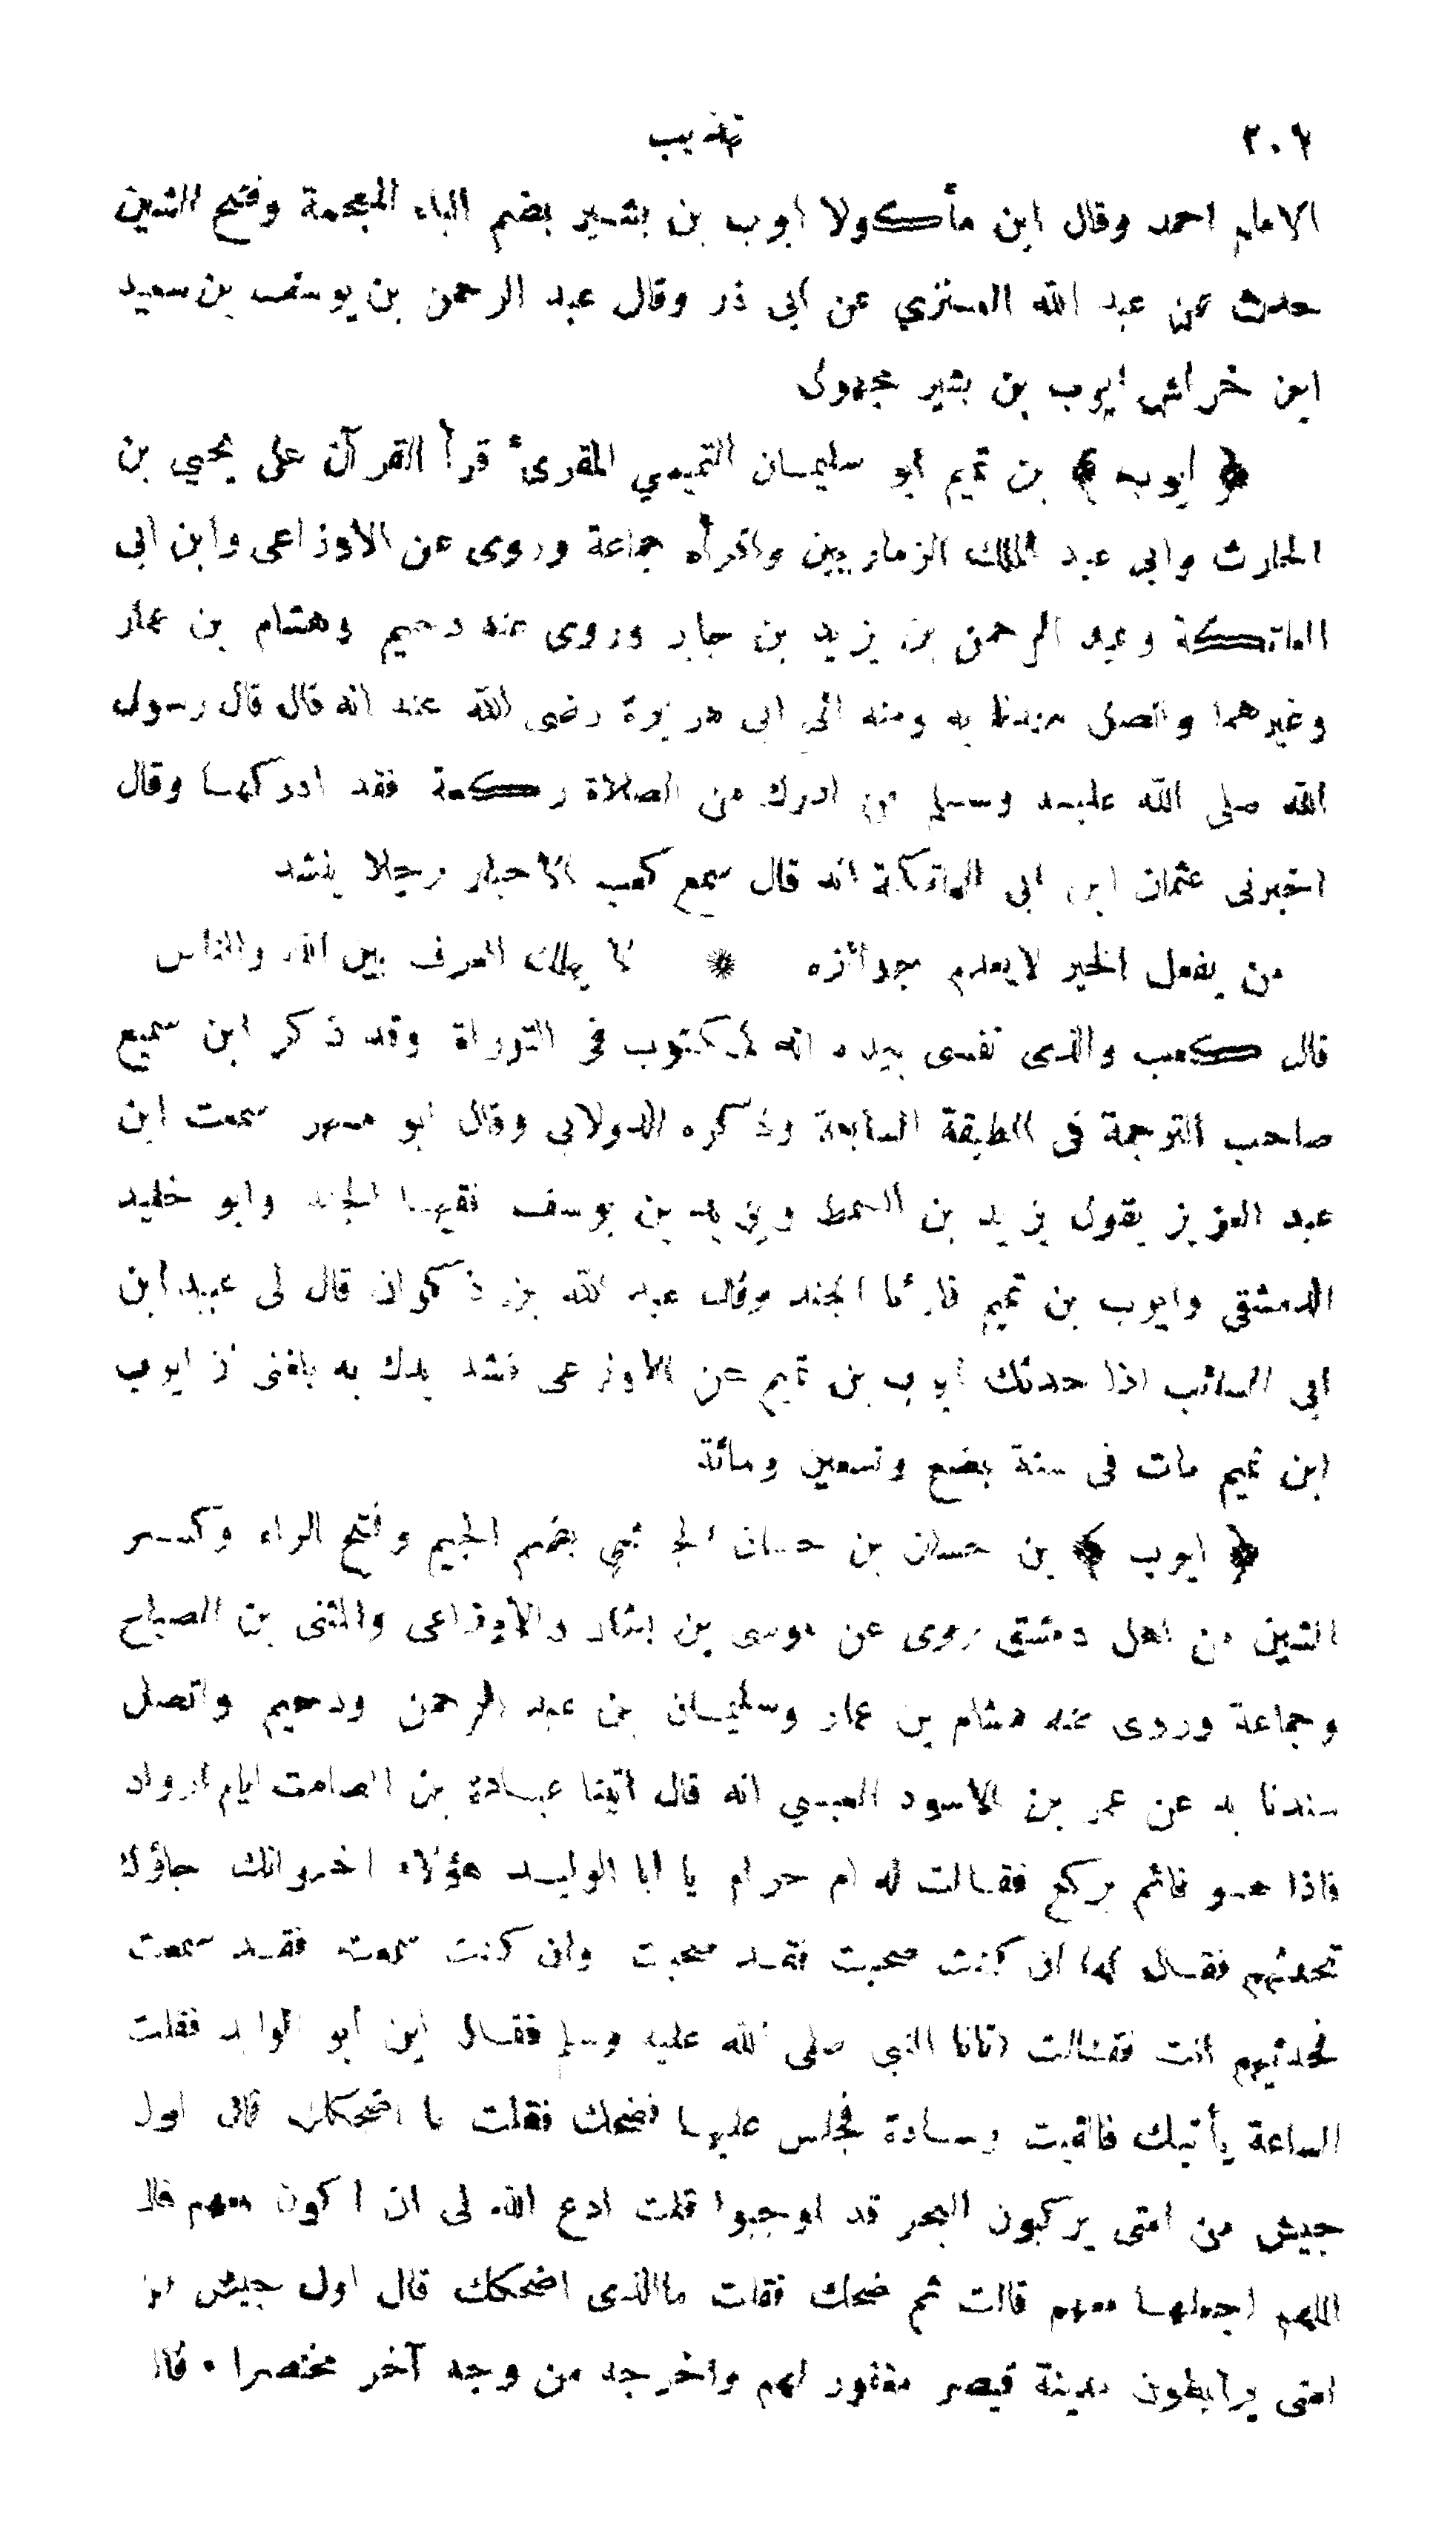 ٢٠٦ تهذيب
الامام احمد وقال ابن مأكولا ايوب بن بشير بضم الباء المعجمة وفتح الشين
حدث عن عبد الله العنزي عن ابى ذر وقال عبد الرحمن بن يوسف بن سعيد
ابن خراش ايوب بن بشير مجهول
﴿ ايوب ﴾ بن تميم ابو سليمان التميمي المقرئ قرأ القرآن على يحيي بن
الحارث وابى عبد الملك الزماريين واقرأه جماعة وروى عن الاوزاعى وابن ابى
العاتكة وعبد الرحمن بن يزيد بن جابر وروى عنه دحيم وهشام بن عمار
وغيرهما واتصل سندنا به ومنه الى ابى هريرة رضى الله عنه انه قال قال رسول
الله صلى الله عليه وسلم من ادرك من الصلاة ركعة فقد ادركها وقال
اخبرنى عثمان ابن ابى العاتكة انه قال سمع كعب الاحبار رجلا ينشد
من يفعل الخير لايعدم جوائزه * لا يهلك العرف بين الله والناس
قال كعب والذى نفسى بيده انه لمكتوب فى التوراة وقد ذكر ابن سميع
صاحب الترجمة فى الطبقة السابعة وذكره الدولابى وقال ابو مسهر سمعت ابن
عبد العزيز يقول يزيد بن السمط ويزيد بن يوسف فقيها الجند وابو خليد
الدمشقى وايوب بن تميم قارئا الجند وقال عبد الله بن ذكوان قال لى عبيد ابن
ابى السائب اذا حدثك ايوب بن تميم عن الاوزاعى فشد يدك به بلغنى ان ايوب
ابن تميم مات فى سنة بضع وتسعين ومائة
﴿ ايوب ﴾ بن حسان بن حسان الجرشي بضم الجيم وفتح الراء وكسر
الشين من اهل دمشق روى عن موسى بن بشار والأوزاعى والمثنى بن الصباح
وجماعة وروى عنه هشام بن عمار وسليمان بن عبد الرحمن ودحيم واتصل
سندنا به عن عمر بن الاسود العبسي انه قال اتينا عبادة بن الصامت ايام ارواد
فاذا هو قائم يركع فقالت له ام حرام يا ابا الوليد هؤلاء اخوانك جاؤك
تحدثهم فقال لها ان كنت صحبت فقد صحبت وان كنت سمعت فقد سمعت
فحدثيهم انت فقالت اتانا النبى صلى الله عليه وسلم فقال اين ابو الوليد فقلت
الساعة يأتيك فالقيت وسادة فجلس عليها فضحك فقلت ما اضحكك قال اول
جيش من امتى يركبون البحر قد اوجبوا قلت ادع الله لى ان اكون معهم قال
اللهم اجعلها معهم قالت ثم ضحك فقلت ماالذى اضحكك قال اول جيش من
امتى يرابطون مدينة قيصر مغفور لهم واخرجه من وجه آخر مختصرا • قال